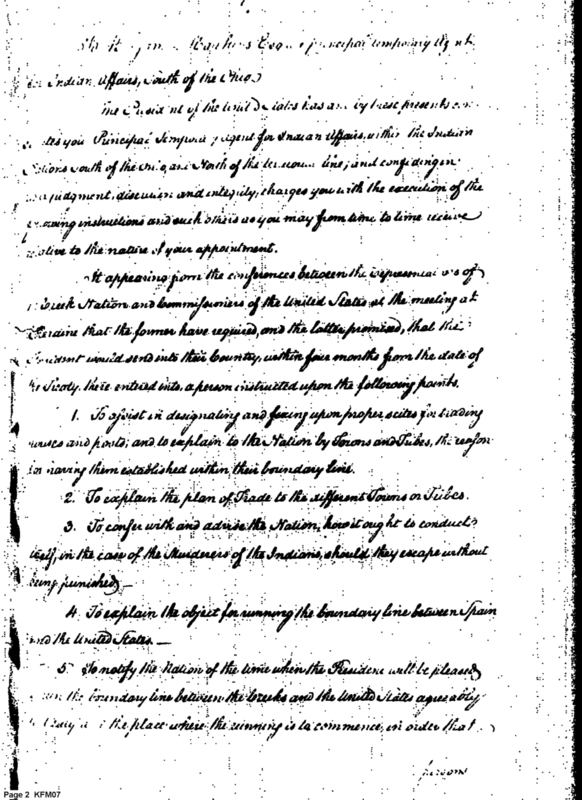 Hawkins Esq principal temporary Agent
for Indian Affairs, South of the Ohio
The President of the United States has and by these presents
you Principal Temporary Agent for Indian Affairs, within the Indian
Nations South of the Ohio, and North of the line; and confiding in
your judgment, discretion and integrity, charges you with the execution of the
following instructions and such others as you may from time to time receive
relative to the nature of your appointment.
It appearing from the conferences between the Representatives of
Creek Nation and Commissioners of the United States at the meeting at
that the former have required, and the latter promised, that the
President would send into their Country, within four months from the date of
the Treaty, there entered into, a person instructed upon the following points.
1. To assist in designating and fixing upon proper scites for trading
houses and posts; and to explain to the Nation by Towns and Tribes, the reason
for having them established within their boundary line.
2. To explain the plan of Trade to the different Towns or Tribes.
3. To confer with and advise the Nation, how it ought to conduct
itself, in the case of the Murderers of the Indians, should they escape without
being punished —
4. To explain the object for running the boundary line between Spain
and the United States —
5. To notify the Nation of the time when the President will be pleased
run the boundary line between the Creeks and the United States agreeably
the place where the running is to commence, in order that
persons
Page 2 KFM07